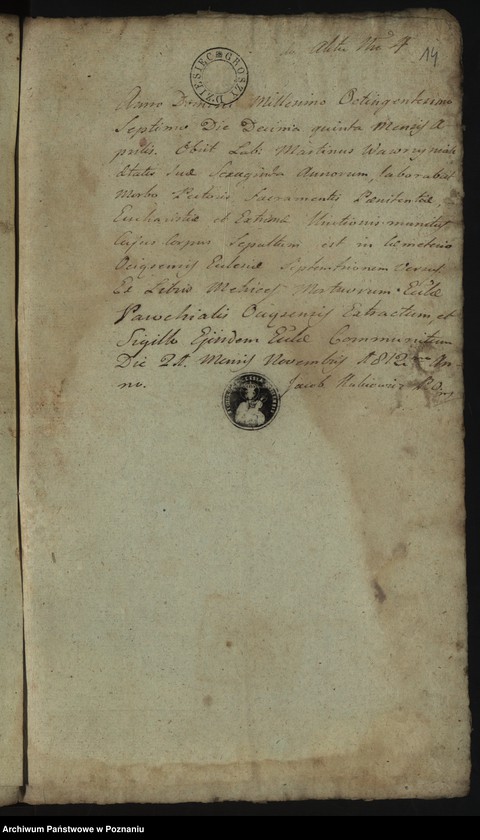 do Aktu Nro 4
14
DZIESIĘĆ GROSZY
Anno Domini Millesimo Octingentesimo
Septimo Die Decima quinta Mensis A-
prilis. Obiit Lab: Martinus
Ætatis Suæ Sexaginta Annorum, laborabat
Morbo Pectoris Sacramentis Pœnitentiæ,
Eucharistiæ et Extremæ Unctionis munitus
Cujus Corpus Sepultum est in Cæmeterio
Ecclesiæ Septentrionem Versus
Ex Libris Metrices Mortuorum Eccłæ
Parochialis Extractum et
Sigillo Ejusdem Eccłæ Communitum
Die 21. Mensis Novembris 1812 An-
no. Jacob
Archiwum Państwowe w Poznaniu